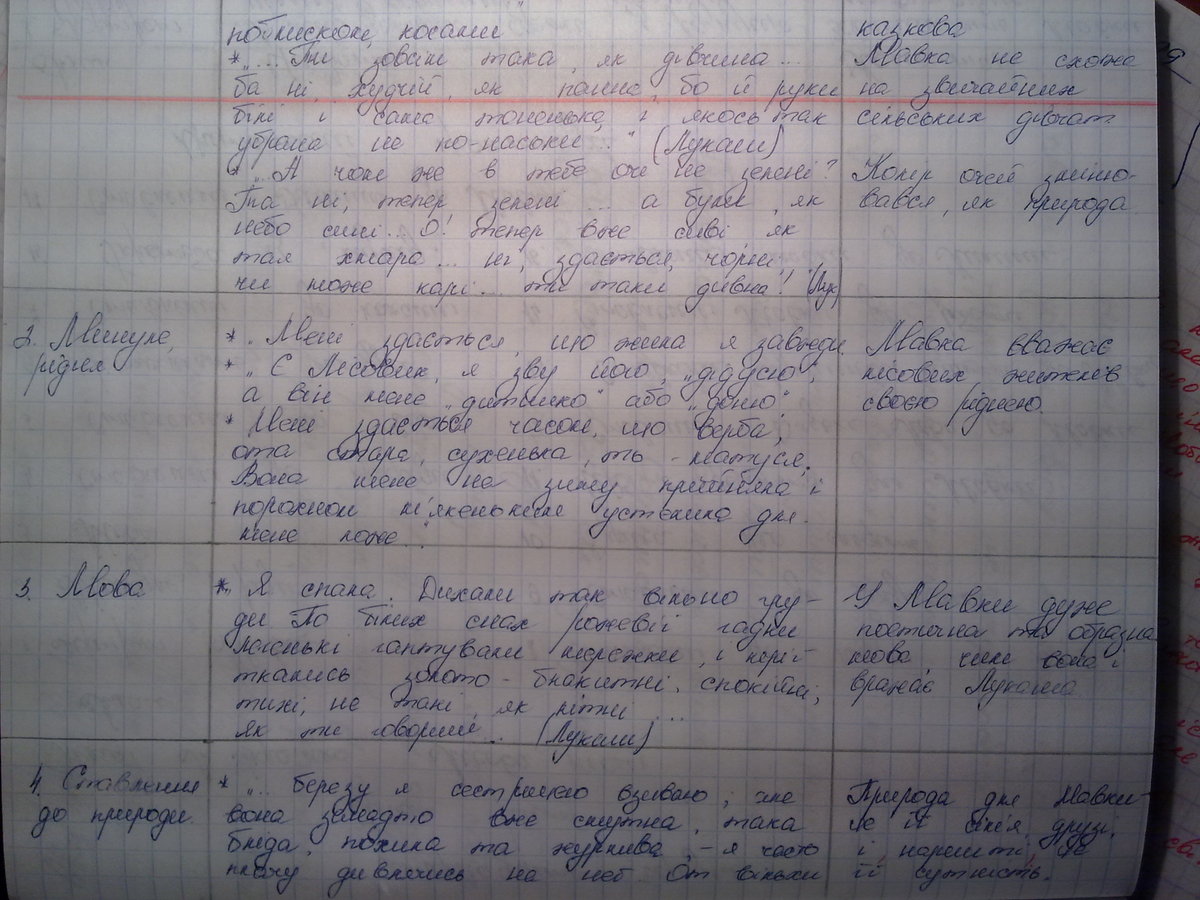 поблиском, косами"
казкова
*„... Ти зовсім така, як дівчина...
Мавка не схожа
ба ні, хутчій, як панна, бо й руки
на звичайних
білі і сама тоненька, і якось так
сільських дівчат.
убрана не по-наськи..." (Лукаш)
*„...А чом же в тебе очі не зелені?
Колір очей зміню-
Та ні, тепер зелені ... а були, як
вався, як природа.
небо сині... О! тепер вже сиві як
тая хмара... ні, здається, чорні,
чи може карі... ти таки дивна! (Лук)
2. Минуле,
*„Мені здається, що жила я завжди.
Мавка вважає
рідня
*„Є Лісовик, я зву його „дідусю",
лісових жителів
а він мене „дитинко" або „доню"
своєю ріднею.
*Мені здається часом, що верба,
ота стара, сухенька, то - матуся.
Вона мене на зиму прийняла і
порохном м'якеньким устелила для
мене ложе..."
3. Мова
*„Я спала. Дихали так вільно гру-
У Мавки дуже
ди. По білих снах рожевії гадки
поетична та образна
легенькі гаптували мережки, і мрії
мова, чим вона і
ткались золото-блакитні, спокійні,
вражає Лукаша.
тихі, не такі, як літні ...
Як ти говориш.. (Лукаш)
4. Ставлення
*„... березу я сестрицею взиваю; але
Природа для Мавки
до природи.
вона занадто вже смутна, така
це її сім'я, друзі,
бліда, похила та журлива, - я часто
і, нарешті, це
плачу дивлячись на неї. От вільхи
її сутність.